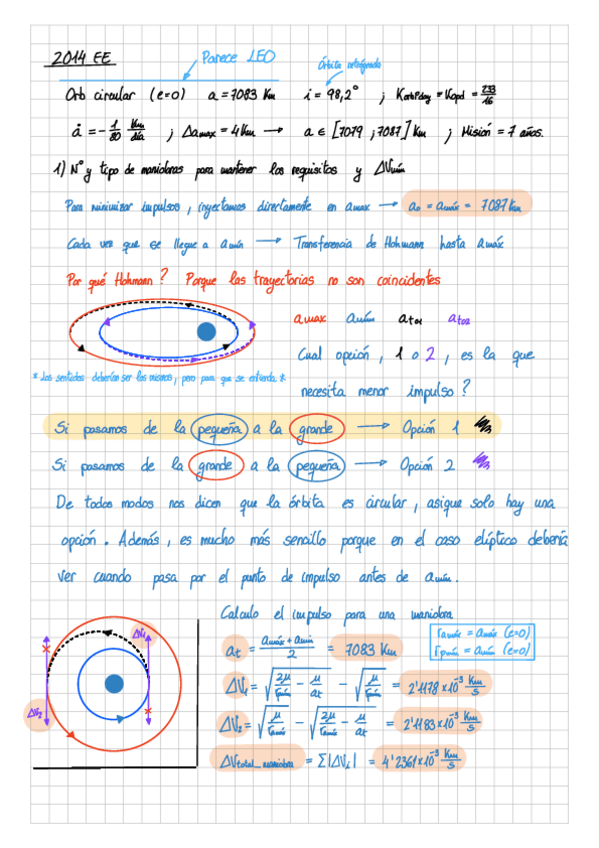 2014 EE
Parece LEO
Órbita retrógrada
Orb circular (e=0) a = 7083 Km i = 98,2° ; Korb/day = Kopd = 233/16
ȧ = - 1/80 Km/día ; Δamax = 4Km → a ∈ [7079 ; 7087] Km ; Misión = 7 años.
1) Nº y tipo de maniobras para mantener los requisitos y ΔVmín
Para minimizar impulsos, inyectamos directamente en amax → a0 = amáx = 7087 Km
Cada vez que se llegue a amín → Transferencia de Hohmann hasta amáx
Por qué Hohmann? Porque las trayectorias no son coincidentes
amax amín ato1 ato2
Cual opción, 1 o 2, es la que
necesita menor impulso?
*Los sentidos deberían ser los mismos, pero para que se entienda.*
Si pasamos de la pequeña a la grande → Opción 1
Si pasamos de la grande a la pequeña → Opción 2
De todos modos nos dicen que la órbita es circular, asique solo hay una
opción. Además, es mucho más sencillo porque en el caso elíptico debería
ver cuando pasa por el punto de impulso antes de amín.
Calculo el impulso para una maniobra
ΔV1
ΔV2
at = (amáx + amín)/2 = 7083 Km
ramáx = amáx (e=0)
rpmín = amín (e=0)
ΔV1 = √(2μ/rpmín - μ/at) - √(μ/rpmín) = 2'1178×10⁻³ Km/s
ΔV2 = √(μ/ramáx) - √(2μ/ramáx - μ/at) = 2'1183×10⁻³ Km/s
ΔVtotal_maniobra = Σ|ΔVi| = 4'2361×10⁻³ Km/s